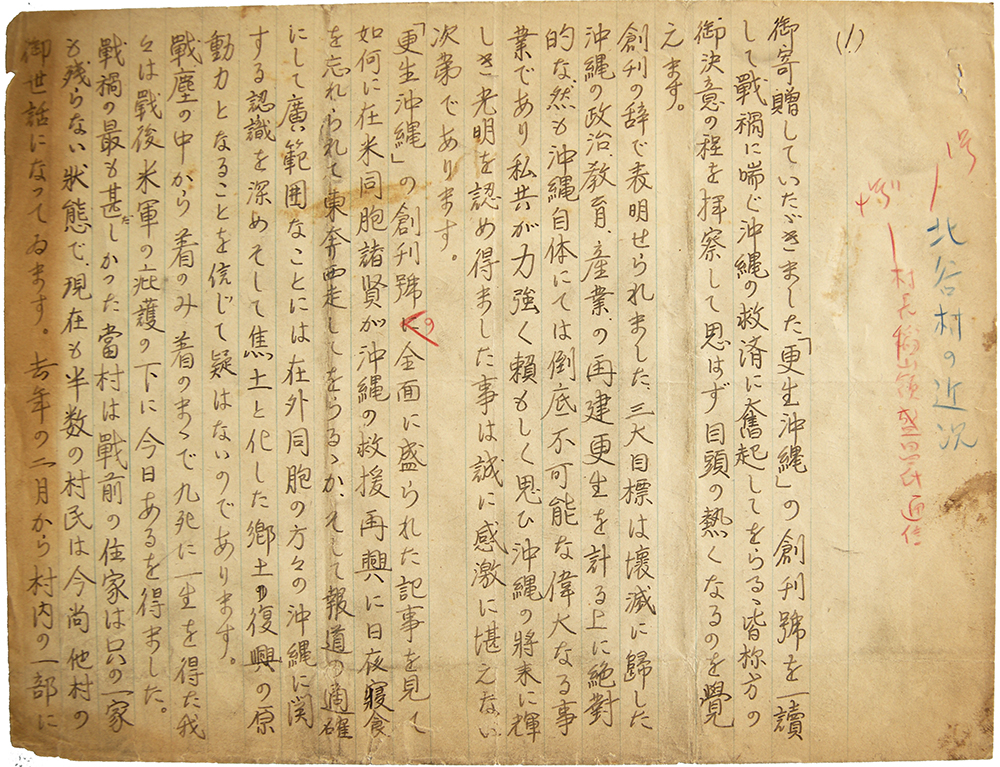 (1)
北谷村の近況
村長 盛 氏通信
御寄贈していたゞきました「更生沖縄」の創刊號を一讀
して戰禍に喘ぐ沖縄の救済に奮起してをらるゝ皆様方の
御決意の程を拝察して思はず目頭の熱くなるのを覺
えます。
創刊の辞で表明せられました、三大目標は壊滅に歸した
沖縄の政治、教育、産業の再建更生を計る上に絶對
的な、然も沖縄自体にては倒底不可能な偉大なる事
業であり私共が力強く頼もしく思ひ沖縄の將来に輝
しき光明を認め得ました事は誠に感激に堪えない
次第であります。
「更生沖縄」の創刊號の全面に盛られた記事を見て
如何に在米同胞諸賢が沖縄の救援再興に日夜寝食
を忘れられて東奔西走してをらるゝか、そして報道の適確
にして廣い範囲なことには在外同胞の方々の沖縄に関
する認識を深めそして焦土と化した郷土の復興の原
動力となることを信じて疑はないのであります。
戰塵の中から着のみ着のまゝで九死に一生を得た我
々は戰後米軍の庇護の下に今日あるを得ました。
戰禍の最も甚だしかった當村は戰前の住家は只の一家
も残らない状態で、現在も半数の村民は今尚他村の
御世話になってゐます。去年の二月から村内の一部に